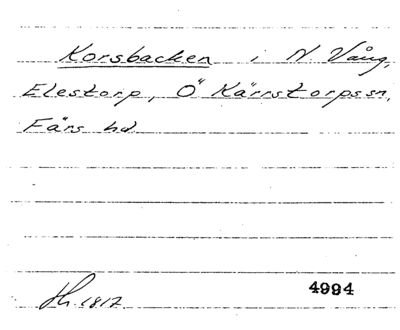 Korsbacken i N. Vång,
Elestorp, Ö Kärrstorpssn,
Färs hd
1817
4994